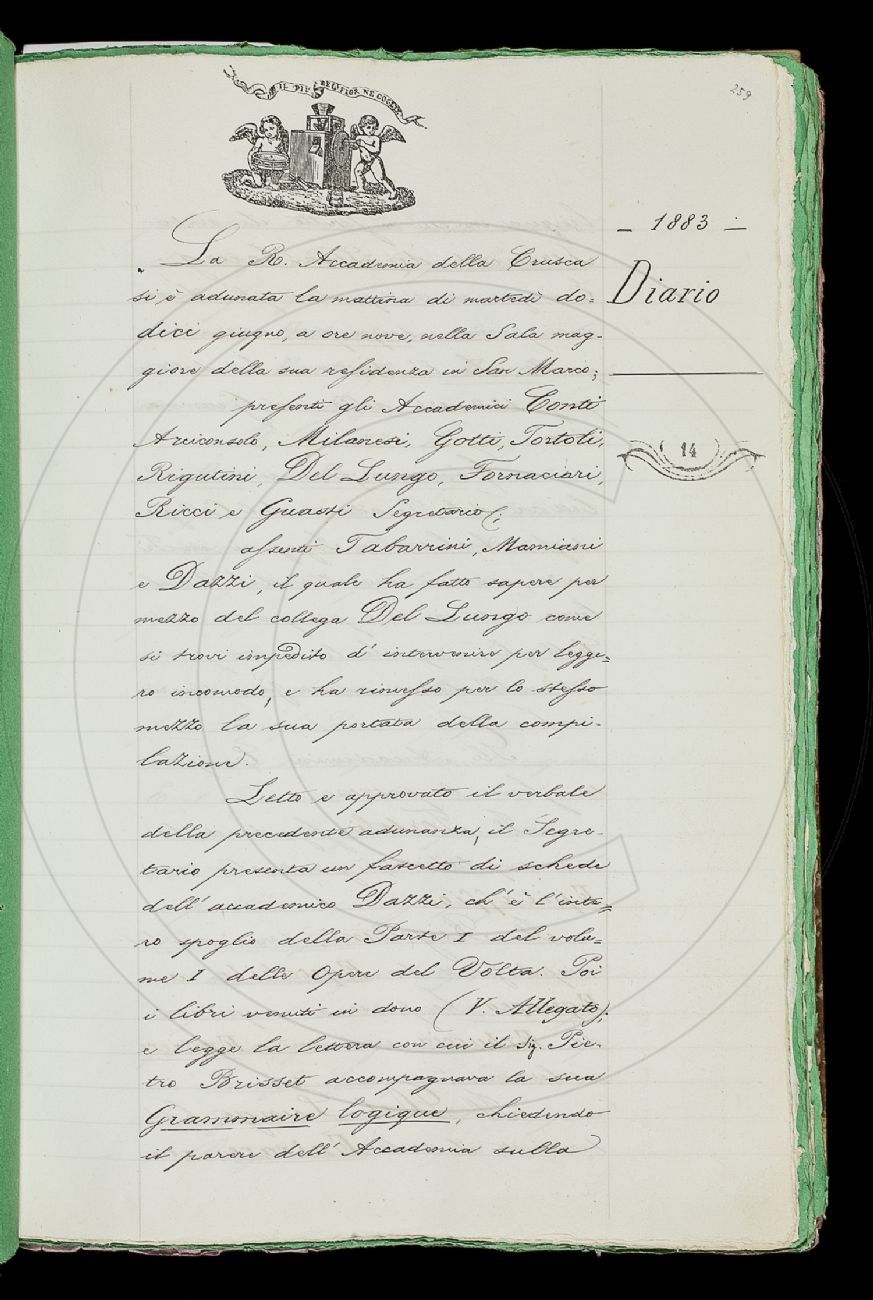 IL PIÙ BEL FIOR NE COGLIE
259
— 1883 —
Diario
14
La R. Accademia della Crusca
si è adunata la mattina di martedì do=
dici giugno, a ore nove, nella Sala mag-
giore della sua residenza in San Marco;
presenti gli Accademici Conti
Arciconsolo, Milanesi, Gotti, Tortoli,
Rigutini, Del Lungo, Fornaciari,
Ricci e Guasti Segretario;
assenti Tabarrini, Mamiani
e Dazzi, il quale ha fatto sapere per
mezzo del collega Del Lungo come
si trovi impedito d'intervenire per legge=
ro incomodo, e ha rimesso per lo stesso
mezzo la sua portata della compi-
lazione.
Letto e approvato il verbale
della precedente adunanza, il Segre-
tario presenta un fascetto di schede
dell'accademico Dazzi, ch'è l'inte=
ro spoglio della Parte I del volu=
me I delle Opere del Volta. Poi
i libri venuti in dono (V. Allegato);
e legge la lettera con cui il Sig. Pie-
tro Brisset accompagnava la sua
Grammaire logique, chiedendo
il parere dell'Accademia sulla